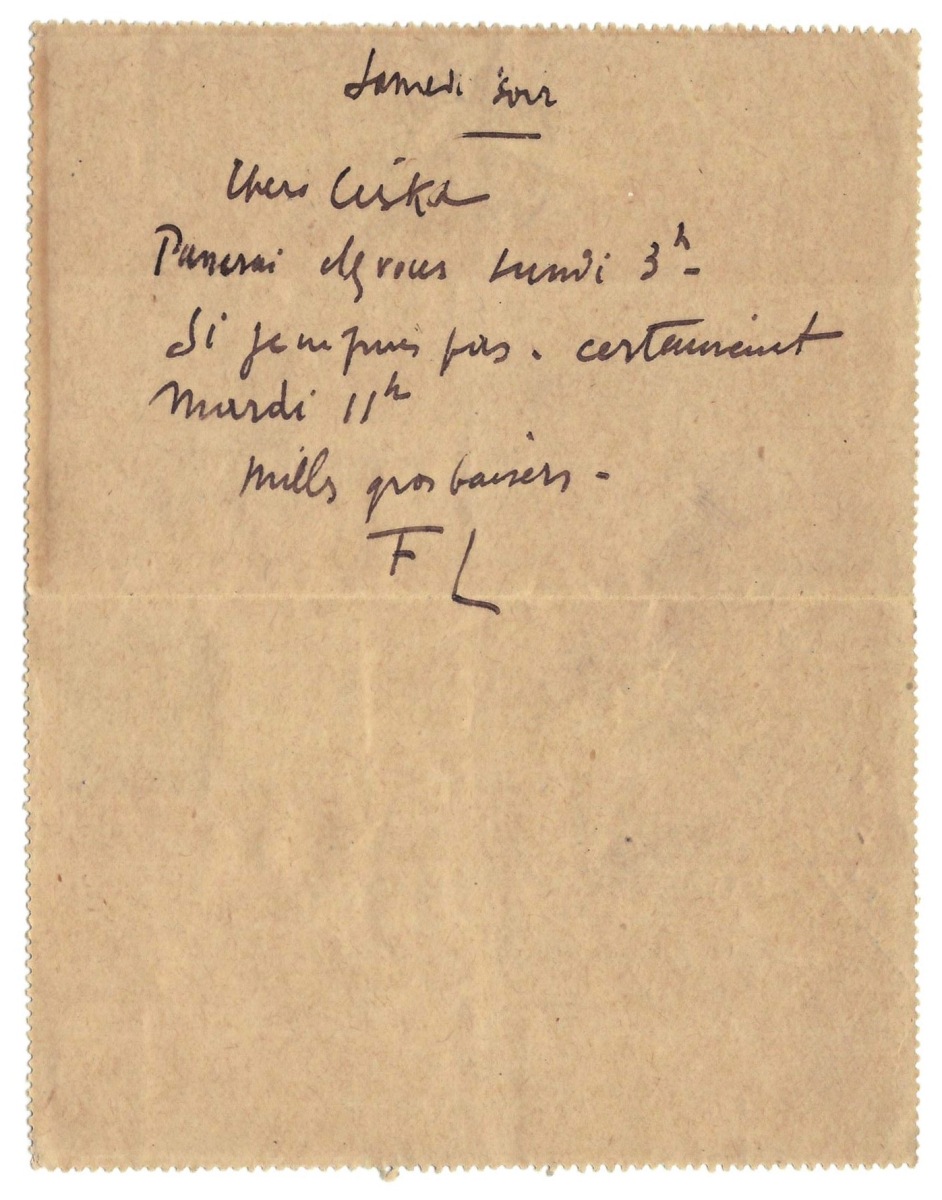 Samedi soir
Chere Ciska
Passerai chez vous Lundi 3h -
Si je ne puis pas. certainement
Mardi 11h
Mille gros baisers -
F L